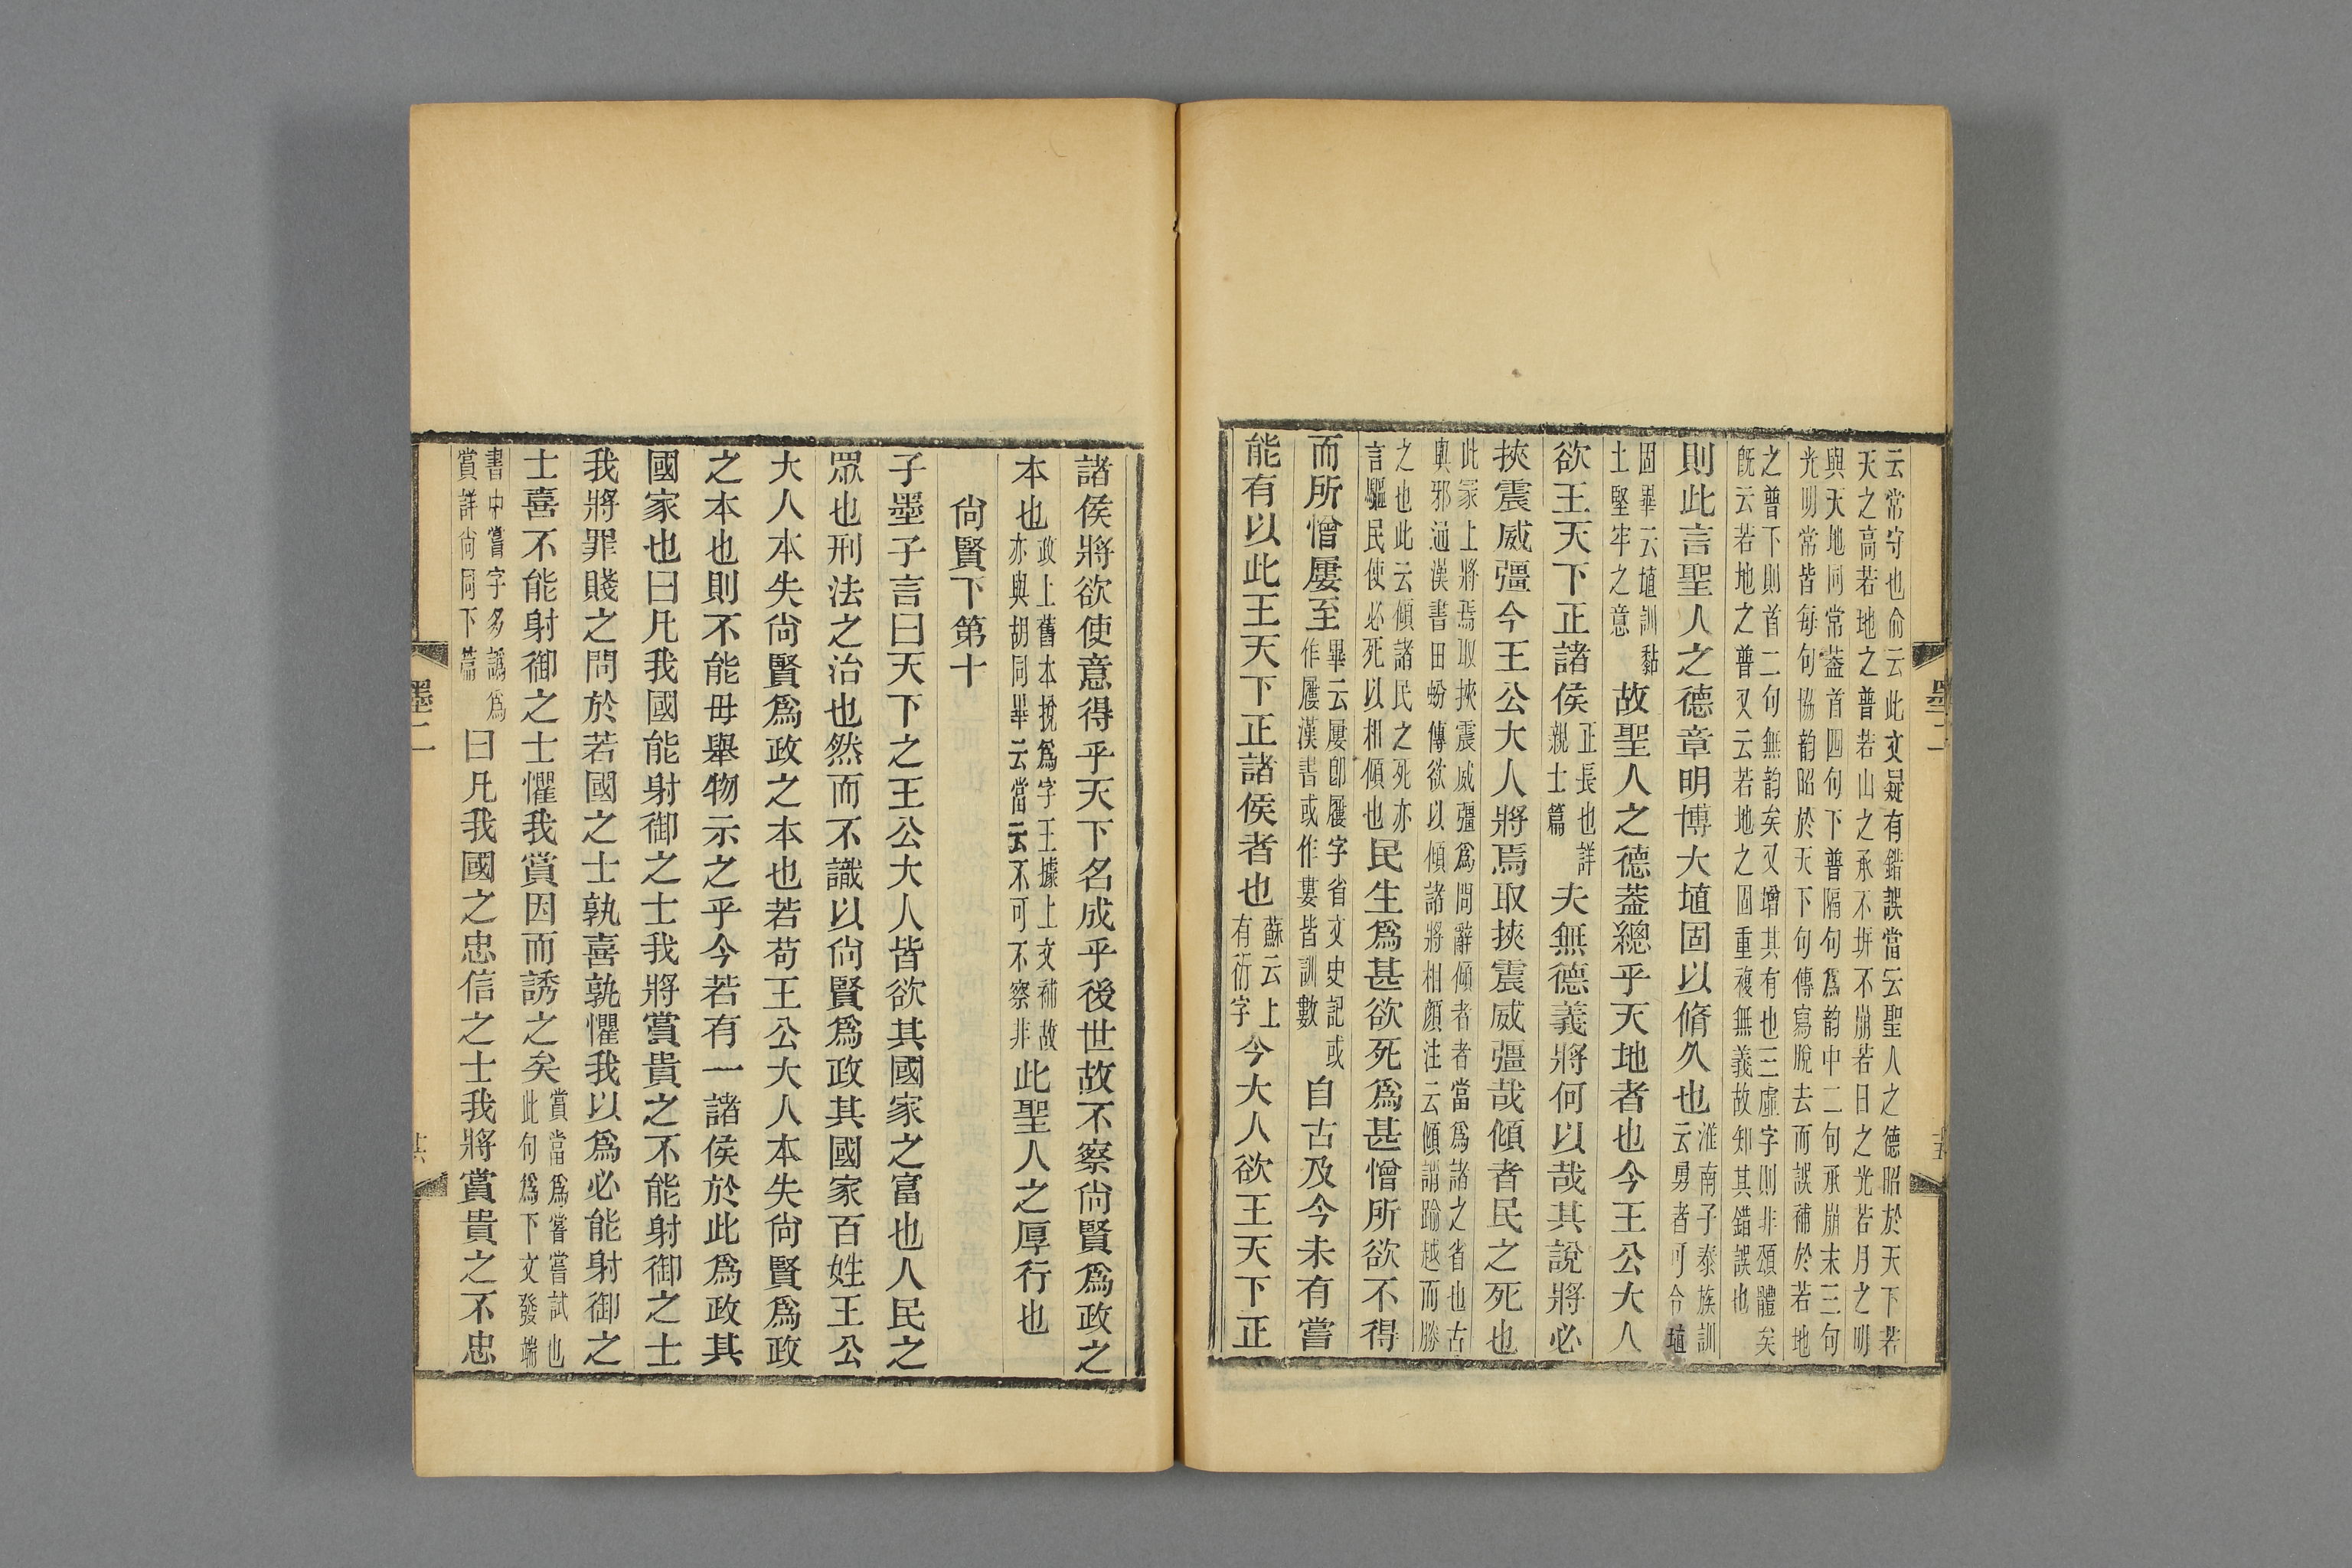 云常守也俞云此文疑有錯誤當云聖人之德昭於天下若
天之高若地之普若山之承不坼不崩若日之光若月之明
與天地同常蓋首四句下普隔句爲韵中二句承崩末三句
光明常皆每句協韵昭於天下句傳寫脫去而誤補於若地
之普下則首二句無韵矣又增其有也三虛字則非頌體矣
旣云若地之普又云若地之固重複無義故知其錯誤也
則此言聖人之德章明博大埴固以脩久也淮南子泰族訓
云勇者可令埴
固畢云埴訓黏
土堅牢之意故聖人之德蓋總乎天地者也今王公大人
欲王天下正諸侯正長也詳
親士篇夫無德義將何以哉其說將必
挾震威彊今王公大人將焉取挾震威彊哉傾者民之死也
此冡上將焉取挾震威彊爲問辭傾者者當爲諸之省也古
與邪通漢書田蚡傳欲以傾諸將相顏注云傾謂踰越而勝
之也此云傾諸民之死亦
言驅民使必死以相傾也民生爲甚欲死爲甚憎所欲不得
而所憎屢至畢云屢卽屨字省文史記或
作屨漢書或作婁皆訓數自古及今未有嘗
能有以此王天下正諸侯者也蘇云上
有衍字今大人欲王天下正
墨二
十五
諸侯將欲使意得乎天下名成乎後世故不察尙賢爲政之
本也政上舊本捝爲字王據上文補故
亦與胡同畢云當云不可不察非此聖人之厚行也
尙賢下第十
子墨子言曰天下之王公大人皆欲其國家之富也人民之
眾也刑法之治也然而不識以尙賢爲政其國家百姓王公
大人本失尙賢爲政之本也若苟王公大人本失尙賢爲政
之本也則不能毋舉物示之乎今若有一諸侯於此爲政其
國家也曰凡我國能射御之士我將賞貴之不能射御之士
我將罪賤之問於若國之士孰喜孰懼我以爲必能射御之
士喜不能射御之士懼我賞因而誘之矣賞當爲嘗嘗試也
此句爲下文發端
書中嘗字多譌爲
賞詳尙同下篇曰凡我國之忠信之士我將賞貴之不忠
墨二